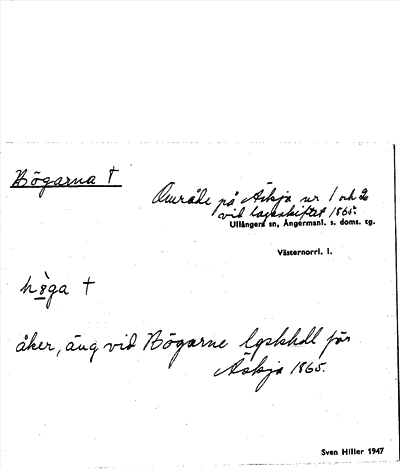 Bögarna †
Område på Äskja nr 1 och 2
vid lagaskiftet 1865.
Ullångers sn, Ångermanl. s. doms. tg.
Västernorrl. l.
åker, äng vid Bögarne
för
Äskja 1865.
Sven Hiller 1947